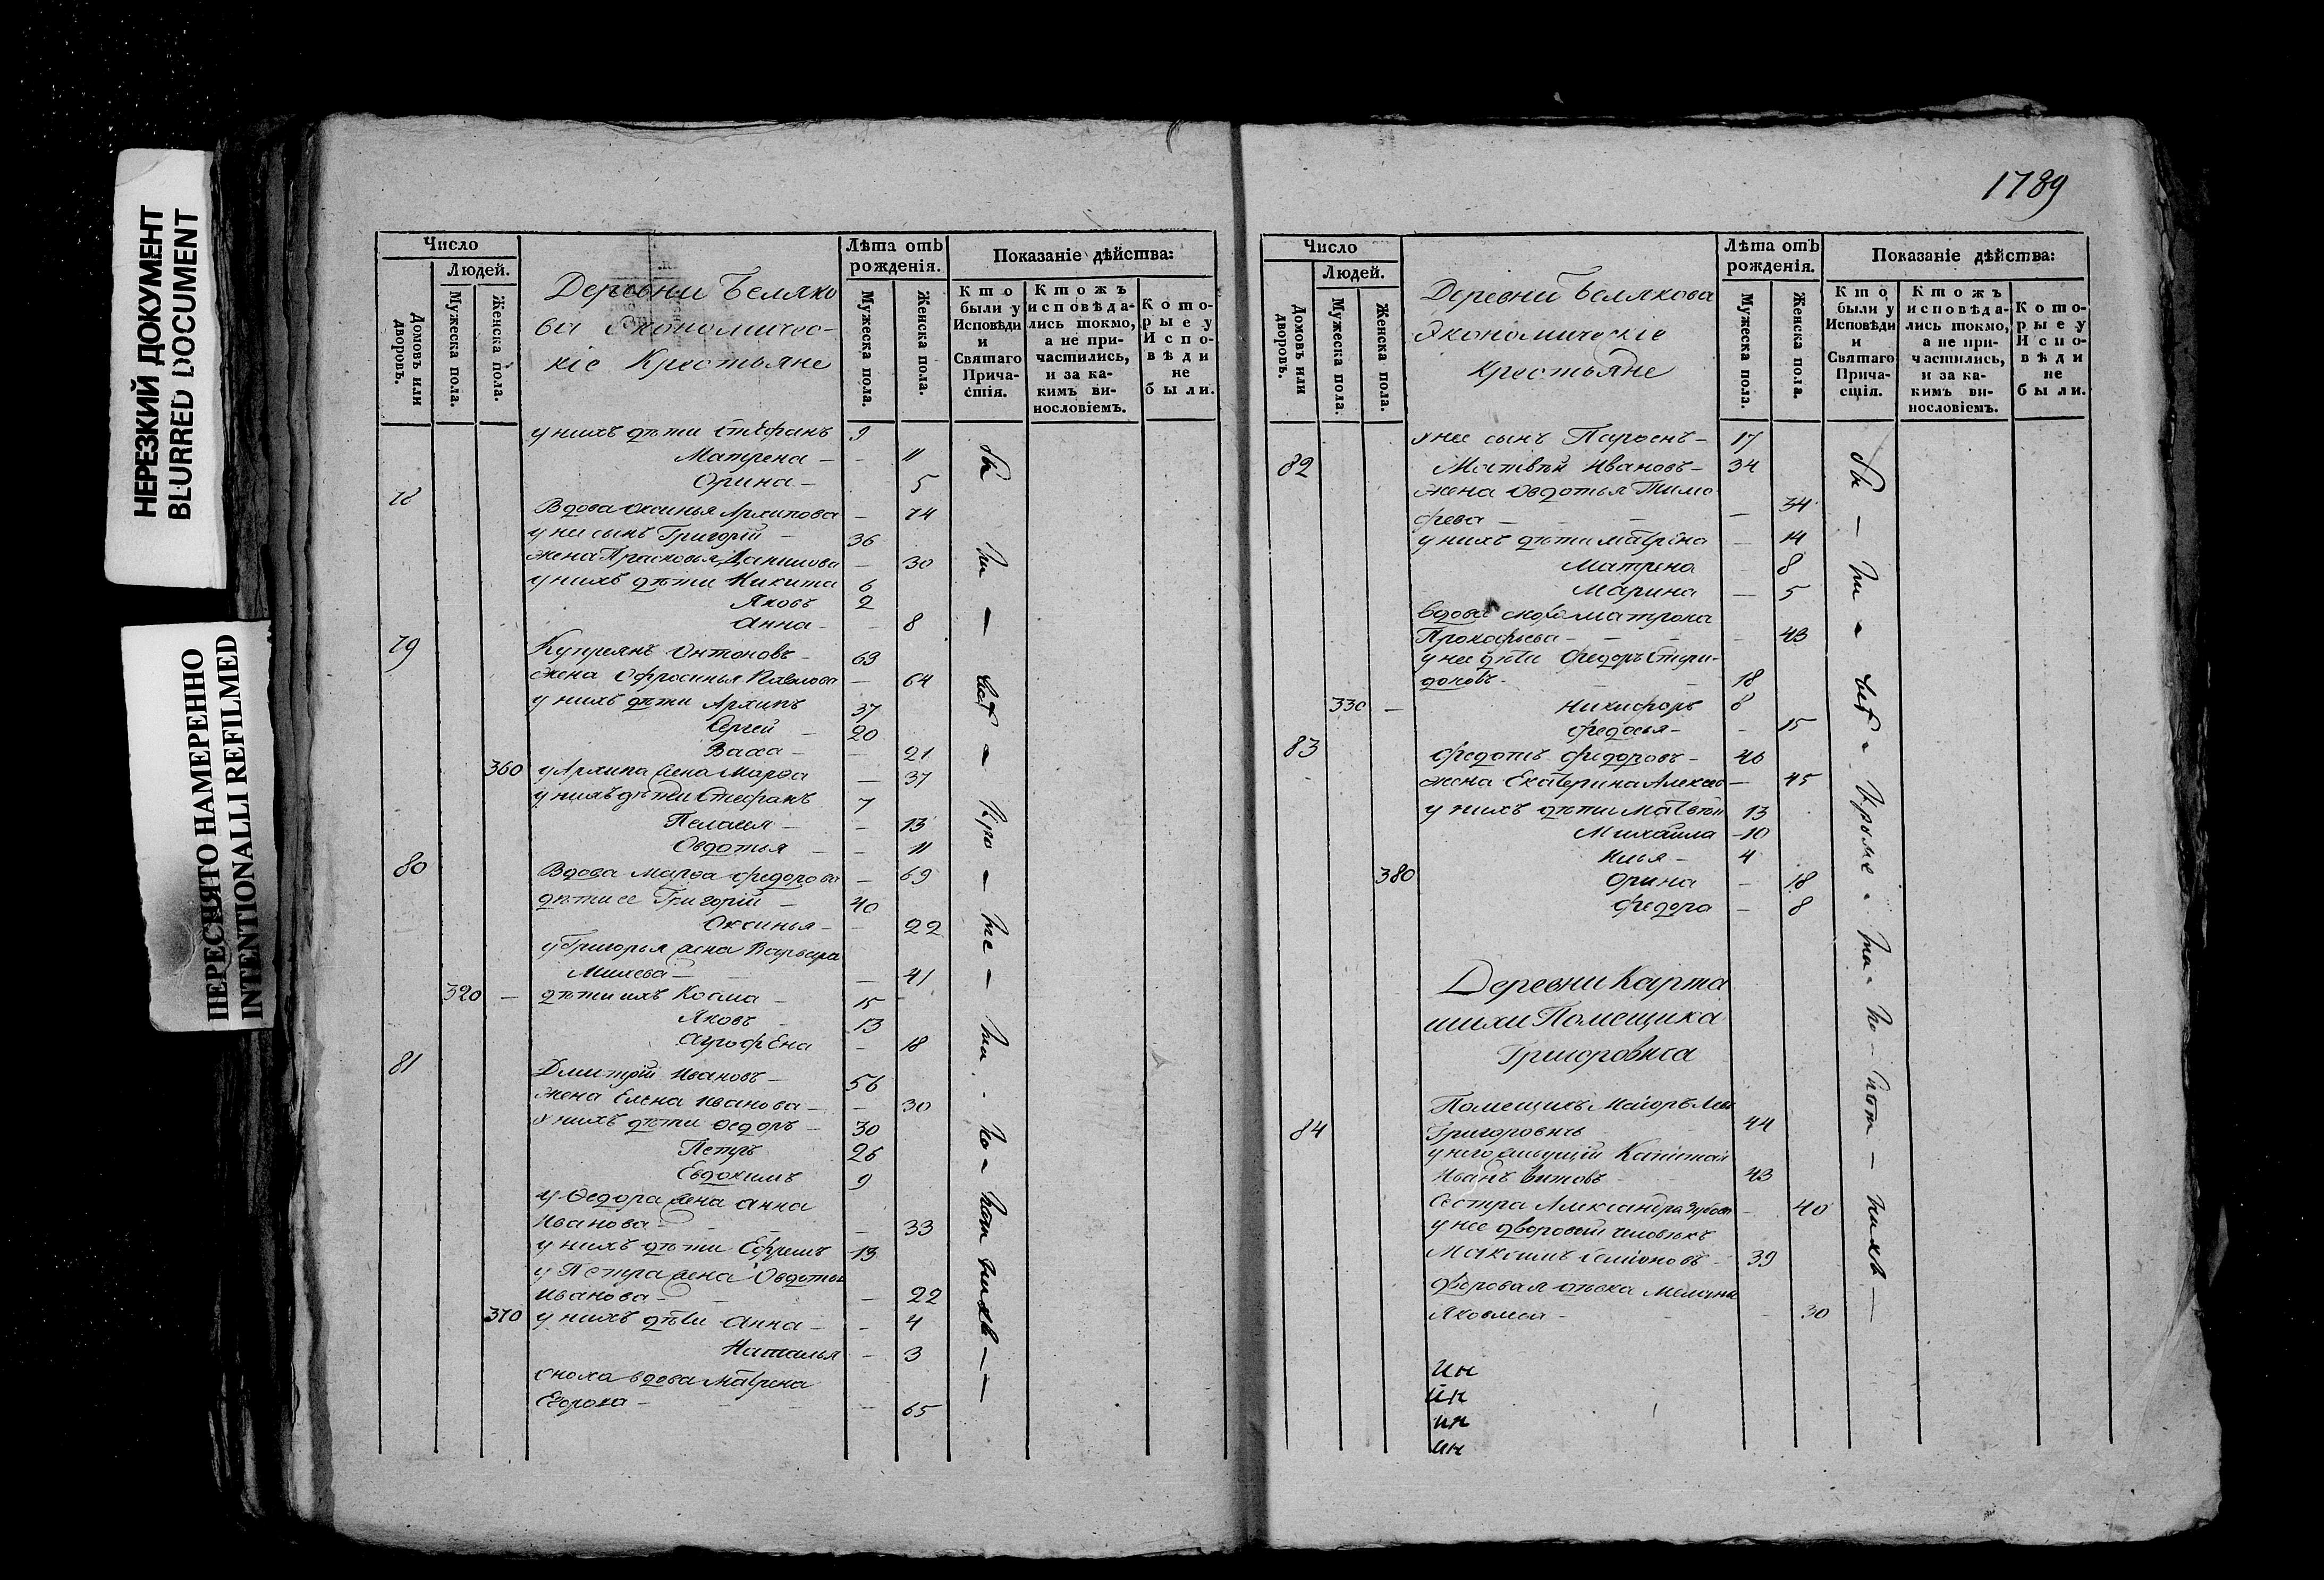 НЕРЕЗКИЙ ДОКУМЕНТ
BLURRED DOCUMENT
ПЕРЕСНЯТО НАМЕРЕННО
INTENTIONALLI REFILMED
Число
Людей.
Домовъ или дворовъ.
Мужеска пола.
Женска пола.
Деревни Беляко
ви Экономичес-
кіе Крестьяне
Лѣта отъ рожденія.
Мужеска пола.
Женска пола.
Показаніе дѣйства:
Кто были у Исповѣди и Святаго Прича-стія.
Ктожъ исповѣда-лись токмо, а не при-частились, и за ка-кимъ ви-нословіемъ.
Кото-рые у Испо-вѣди не были.
у нихъ дѣти Стефанъ 9
Матрена - - 11
Орина - 5
78 Вдова Оксинья Архипова - 74
у ни сынъ Григорій - 36
жена Прасковья Данилова - 30
у нихъ дѣти Никита 6
Яковъ 2
Анна - - 8
79 Купреянъ Антоновъ - 63
жена Офросинья Павлова - 64
у нихъ дѣти Архипъ 37
Сергей - 20
Васса - - 21
360 у Архипа жена Марѳа - 37
у нихъ дѣти Стефанъ 7
Пелагея - - 13
Овдотья - - 11
80 Вдова Марѳа Федорова - 69
дѣти ее Григорій - 40
Оксинья - - 22
у Григорья жена Варвара
- 41
320 - дѣти ихъ Косма - 15
Яковъ - 13
Агрофена - 18
81 Дмитрій Ивановъ - 56
жена Елена Иванова - - 30
у нихъ дѣти Ѳедоръ - 30
Петръ 26
Евдокимъ 9
у Ѳедора жена Анна
Иванова - - 33
у нихъ дѣти Ефремъ 13
у Петра жена Овдотья
Иванова - - 22
370 у нихъ дѣти Анна - - 4
Наталья - 3
сноха вдова Матрена
- 65
1789
Число
Людей.
Домовъ или дворовъ.
Мужеска пола.
Женска пола.
Деревни Белякова
Экономическіе
Крестьяне
Лѣта отъ рожденія.
Мужеска пола.
Женска пола.
Показаніе дѣйства:
Кто были у Исповѣди и Святаго Прича-стія.
Ктожъ исповѣда-лись токмо, а не при-частились, и за ка-кимъ ви-нословіемъ.
Кото-рые у Испо-вѣди не были.
у нее сынъ Парѳенъ - 17
82 Матвѣй Ивановъ - 34
жена Овдотья Тимо
феева - - 34
у нихъ дѣти Матрена - 14
Матрена - 8
Марина - 5
вдова сноха Матрона
Прокофьева - - 43
у нее дѣти Федоръ Спири-
доновъ - 18
330 - Никифоръ 8
Федосья - - 15
83 Федотъ Федоровъ - 46
жена Екатерина Алексе - 45
у нихъ дѣти Матвѣй 13
Михайла - 10
Илья - 4
380 Орина - 18
Федора - 8
Деревни Карта
шихи Помещика
Григоровича
Помещикъ Маіоръ
84 Григоровичь 44
у него живущій Капитан
Иванъ 43
Сестра Александра - 40
у нее дворовый человѣкъ
Максимъ Семіоновъ - 39
дворовая дѣвка
Яковлева - - 30